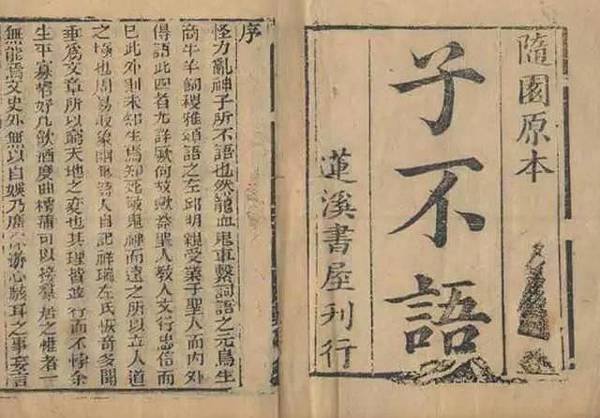 隨園原本
子不語
蓮溪書屋刊行
序
怪力亂神子所不語也然龍血鬼車繫詞語之元鳥生
商牛羊飼稷雅頌語之左邱明親受業于聖人而內外
傳語此四者尤詳厥何故歟蓋聖人教人文行忠信而
已此外則未知生焉知死敬鬼神而遠之所以立人道
之極也周易取象幽詩人自記祥瑞左氏恢奇多聞
垂為文章所以窮天地之變也其理皆並行而不悖余
生平寡嗜好凡飲酒度曲樗蒲可以接羣居之懽者一
無能焉文史外無以自娛乃廣游心駭耳之事妄言